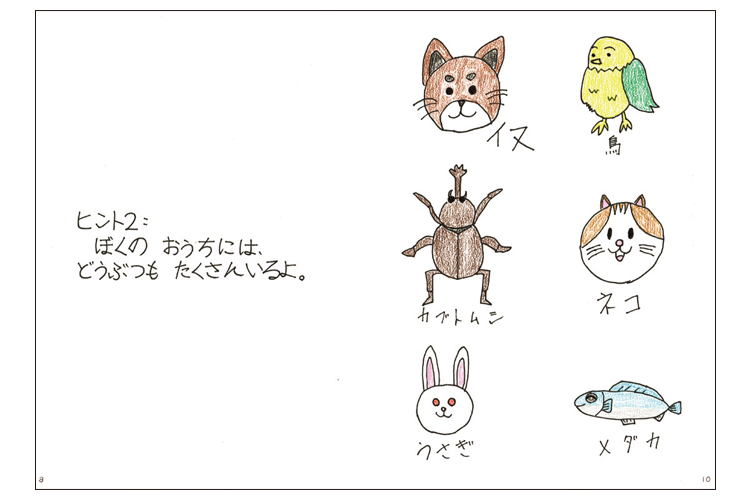 ヒント2:
ぼくの おうちには、
どうぶつも たくさんいるよ。
8
イヌ
鳥
カブトムシ
ネコ
うさぎ
メダカ
10